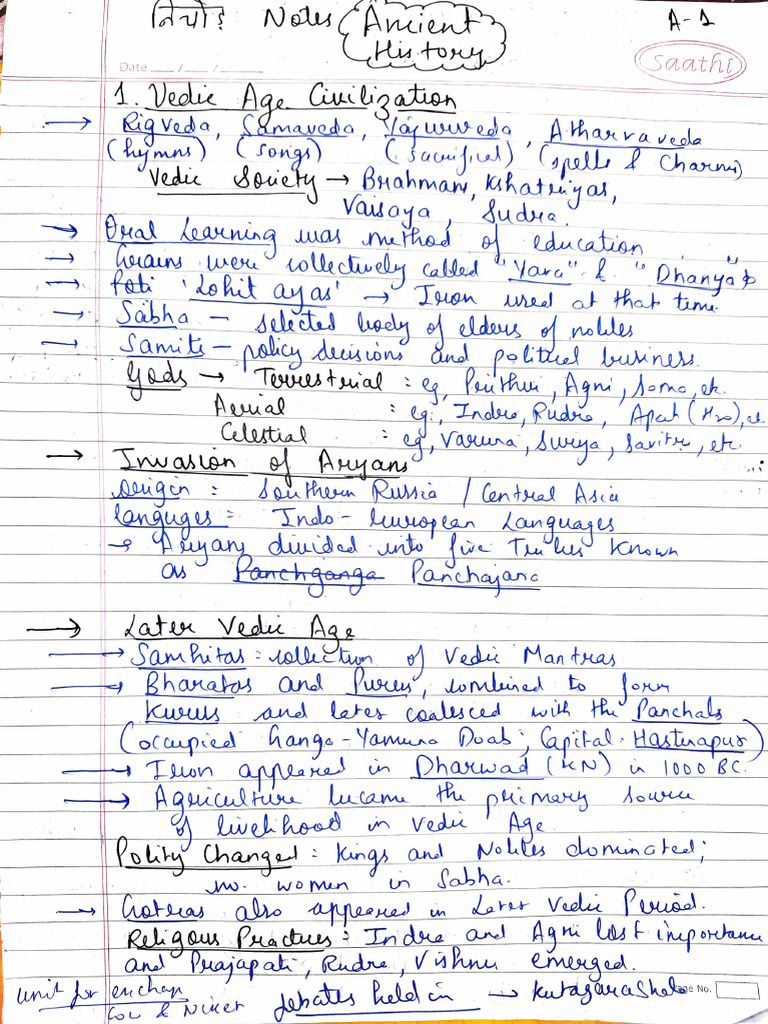 निचोड़ Notes Ancient History A-1
Date ___/___/___ Saathi
1. Vedic Age Civilization
→ Rigveda, Samaveda, Yajurveda, Atharvaveda
(hymns) (songs) (sacrifical) (spells & Charms)
Vedic Society → Brahmans, Kshatriyas,
Vaisaya, Sudra.
→ Oral Learning was method of education
→ Grains were collectively called "Yava" & "Dhanya"
→ 'Lohit ayas' → Iron used at that time.
→ Sabha – selected body of elders of nobles
→ Samiti – policy decisions and political business.
Gods → Terrestrial : eg, Prithvi, Agni, Soma, etc.
Aerial : eg:, Indra, Rudra, Apat (H2O), etc
Celestial : eg, Varuna, Surya, Savitr, etc
→ Invasion of Aryans
Origin : Southern Russia / Central Asia
languges = Indo-European Languages
→ Aryans divided into five Tribes Known
as Panchganga Panchajana
→ Later Vedic Age
→ Samhitas = collection of Vedic Mantras
→ Bharatas and Purus, combined to form
Kurus and later coalesced with the Panchals
(occupied Ganga-Yamuna Doab; Capital-Hastinapur)
→ Iron appeared in Dharwad (KN) in 1000 BC.
→ Agriculture became the primary source
of livelihood in Vedic Age
Polity Changed = Kings and Nobles dominated;
no. women in Sabha.
→ Gotras also appeared in Later Vedic Period.
Religous Practices = Indra and Agni lost importance
and Prajapati, Rudra, Vishnu emerged.
Page No.
unit for exchan debates held in → Kutagarashala
Cow & Nisker